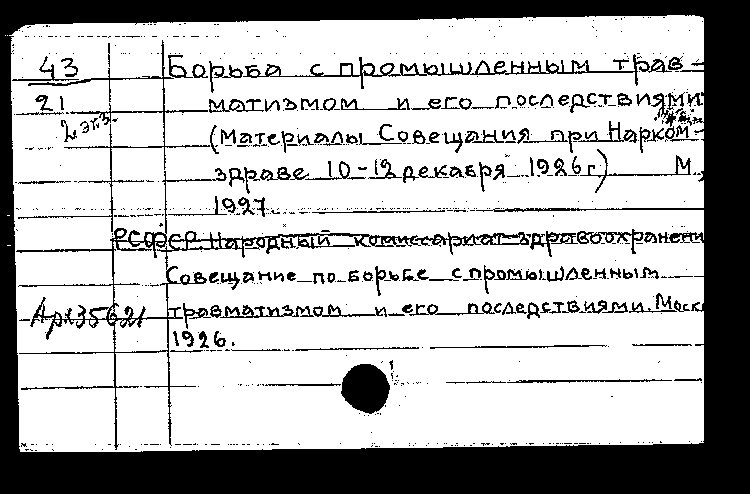 43 Борьба с промышленным трав-
21 матизмом и его последствиями
2 экз. (Материалы Совещания при Нарком-
здраве 10-12 декабря 1926 г.) М.,
1927
РСФСР. Народный комиссариат здравоохранени
Совещание по борьбе с промышленным
Арх35621 травматизмом и его последствиями. Моск
1926.